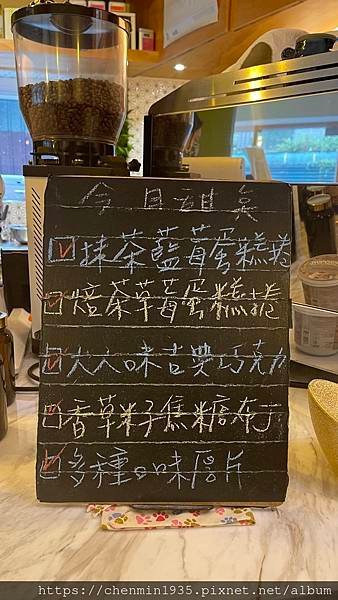 今日甜点
抹茶藍莓蛋糕捲
焙茶草莓蛋糕捲
大人味古典巧克力
香草籽焦糖布丁
多種口味厚片
https://chenmin1935.pixnet.net/album